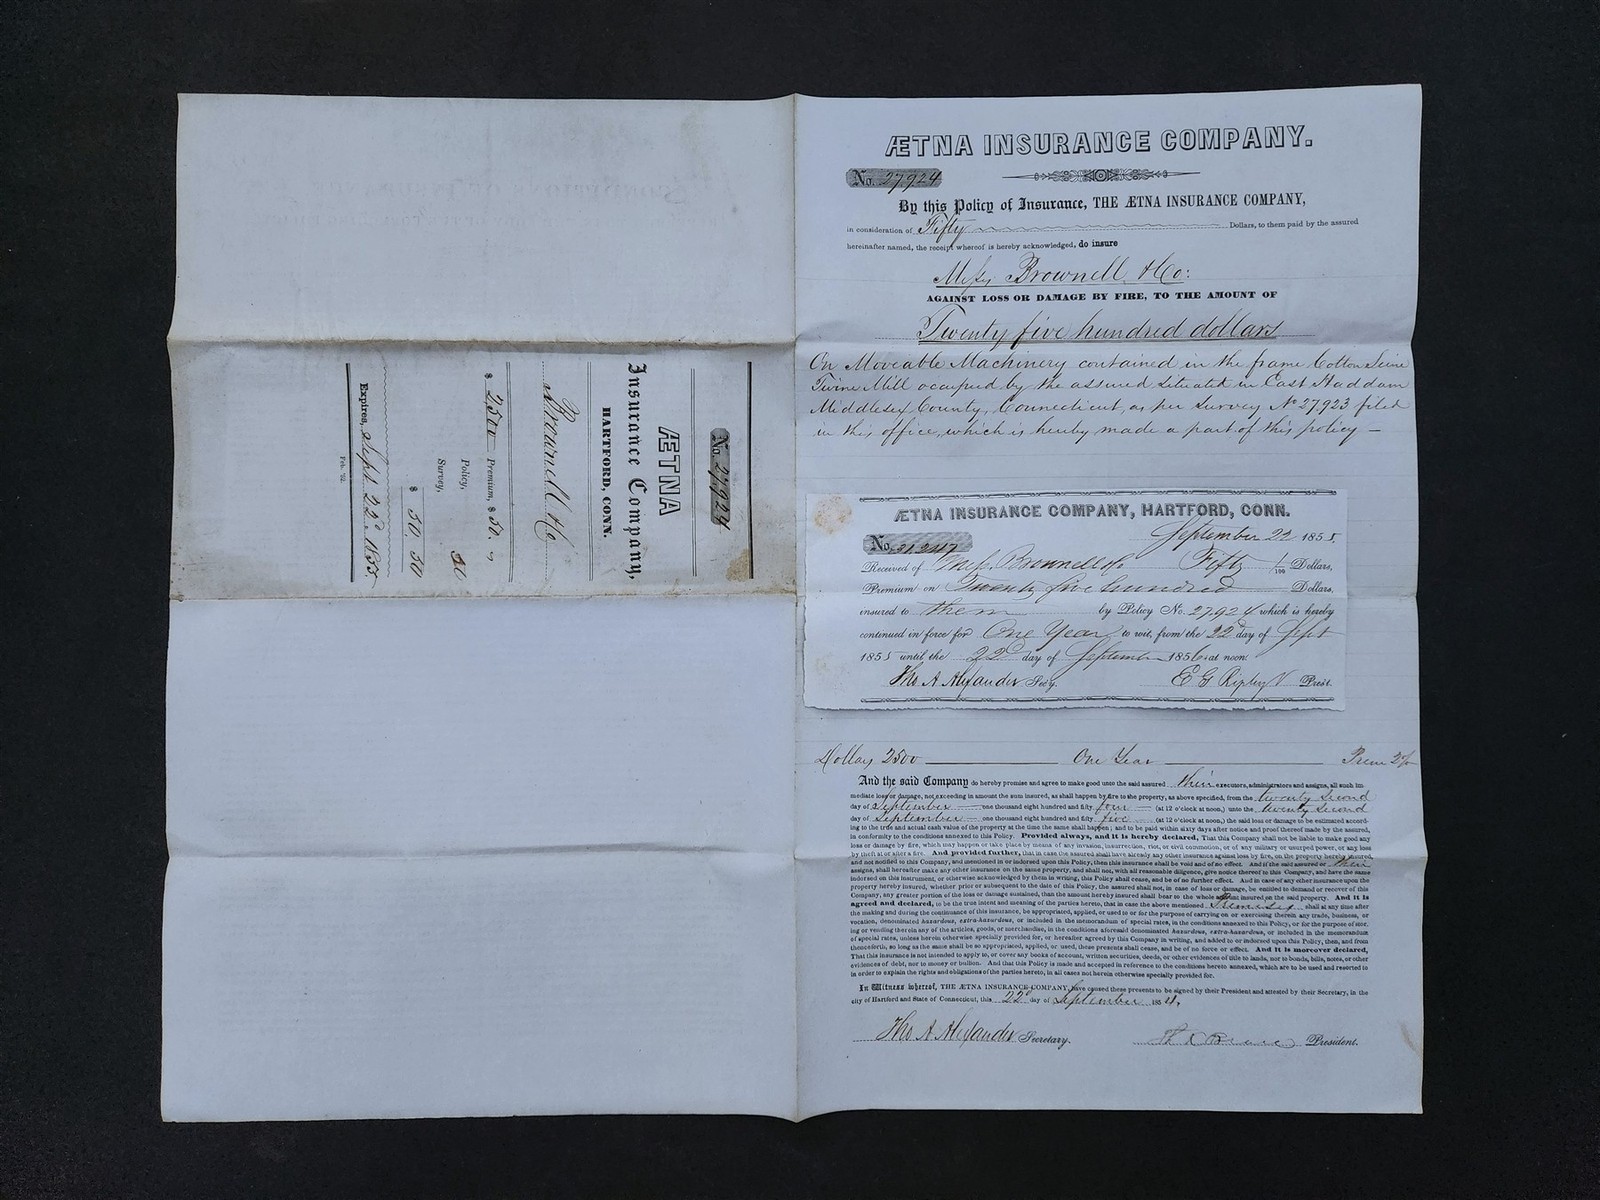 ÆTNA INSURANCE COMPANY.
No. 27,924
By this Policy of Insurance, THE ÆTNA INSURANCE COMPANY,
in consideration of Fifty Dollars, to them paid by the assured
hereinafter named, the receipt whereof is hereby acknowledged, do insure
Messrs Brownell & Co:
AGAINST LOSS OR DAMAGE BY FIRE, TO THE AMOUNT OF
Twenty five hundred dollars
On Moveable Machinery contained in the frame Cotton Seine
Twine Mill occupied by the assured situated in East Haddam
Middlesex County, Connecticut, as per Survey No 27,923 filed
in this office, which is hereby made a part of this policy —
ÆTNA INSURANCE COMPANY, HARTFORD, CONN.
September 22 1855.
No.
Received of Mess. Brownell & Co Fifty /100 Dollars,
Premium on Twenty five hundred Dollars,
insured to them by Policy No. 27,924 which is hereby
continued in force for One Year to wit, from the 22 day of Sept
1855 until the 22d day of September 1856 at noon.
Tho A Alexander Secy. E G Ripley V Prest.
Dollars 2500 One Year Prem 2%
And the said Company do hereby promise and agree to make good unto the said assured their executors, administrators and assigns, all such im-
mediate loss or damage, not exceeding in amount the sum insured, as shall happen by fire to the property, as above specified, from the twenty second
day of September one thousand eight hundred and fifty four (at 12 o'clock at noon,) unto the twenty second
day of September one thousand eight hundred and fifty five (at 12 o'clock at noon,) the said loss or damage to be estimated accord-
ing to the true and actual cash value of the property at the time the same shall happen; and to be paid within sixty days after notice and proof thereof made by the assured,
in conformity to the conditions annexed to this Policy. Provided always, and it is hereby declared, That this Company shall not be liable to make good any
loss or damage by fire, which may happen or take place by means of any invasion, insurrection, riot, or civil commotion, or of any military or usurped power, or any loss
by theft at or after a fire. And provided further, that in case the assured shall have already any other insurance against loss by fire, on the property hereby insured,
and not notified to this Company, and mentioned in or indorsed upon this Policy, then this insurance shall be void and of no effect. And if the said assured or their
assigns, shall hereafter make any other insurance on the same property, and shall not, with all reasonable diligence, give notice thereof to this Company, and have the same
indorsed on this instrument, or otherwise acknowledged by them in writing, this Policy shall cease, and be of no further effect. And in case of any other insurance upon the
property hereby insured, whether prior or subsequent to the date of this Policy, the assured shall not, in case of loss or damage, be entitled to demand or recover of this
Company, any greater portion of the loss or damage sustained, than the amount hereby insured shall bear to the whole amount insured on the said property. And it is
agreed and declared, to be the true intent and meaning of the parties hereto, that in case the above mentioned Premises shall at any time after
the making and during the continuance of this insurance, be appropriated, applied, or used to or for the purpose of carrying on or exercising therein any trade, business, or
vocation, denominated hazardous, extra-hazardous, or included in the memorandum of special rates, in the conditions annexed to this Policy, or for the purpose of stor-
ing or vending therein any of the articles, goods, or merchandise, in the conditions aforesaid denominated hazardous, extra-hazardous, or included in the memorandum
of special rates, unless herein otherwise specially provided for, or hereafter agreed by this Company in writing, and added to or indorsed upon this Policy, then, and from
thenceforth, so long as the same shall be so appropriated, applied, or used, these presents shall cease, and be of no force or effect. And it is moreover declared,
That this insurance is not intended to apply to, or cover any books of account, written securities, deeds, or other evidences of title to lands, nor to bonds, bills, notes, or other
evidences of debt, nor to money or bullion. And that this Policy is made and accepted in reference to the conditions hereto annexed, which are to be used and resorted to
in order to explain the rights and obligations of the parties hereto, in all cases not herein otherwise specially provided for.
In Witness whereof, THE ÆTNA INSURANCE COMPANY, have caused these presents to be signed by their President and attested by their Secretary, in the
city of Hartford and State of Connecticut, this 22d day of September 1854.
Tho A Alexander Secretary. President.
No. 27,924
ÆTNA
Insurance Company,
HARTFORD, CONN.
Brownell & Co
$ 2500 Premium, $ 50.
Policy, 50
Survey,
$ 50.50
Expires, Sept. 22d. 1855